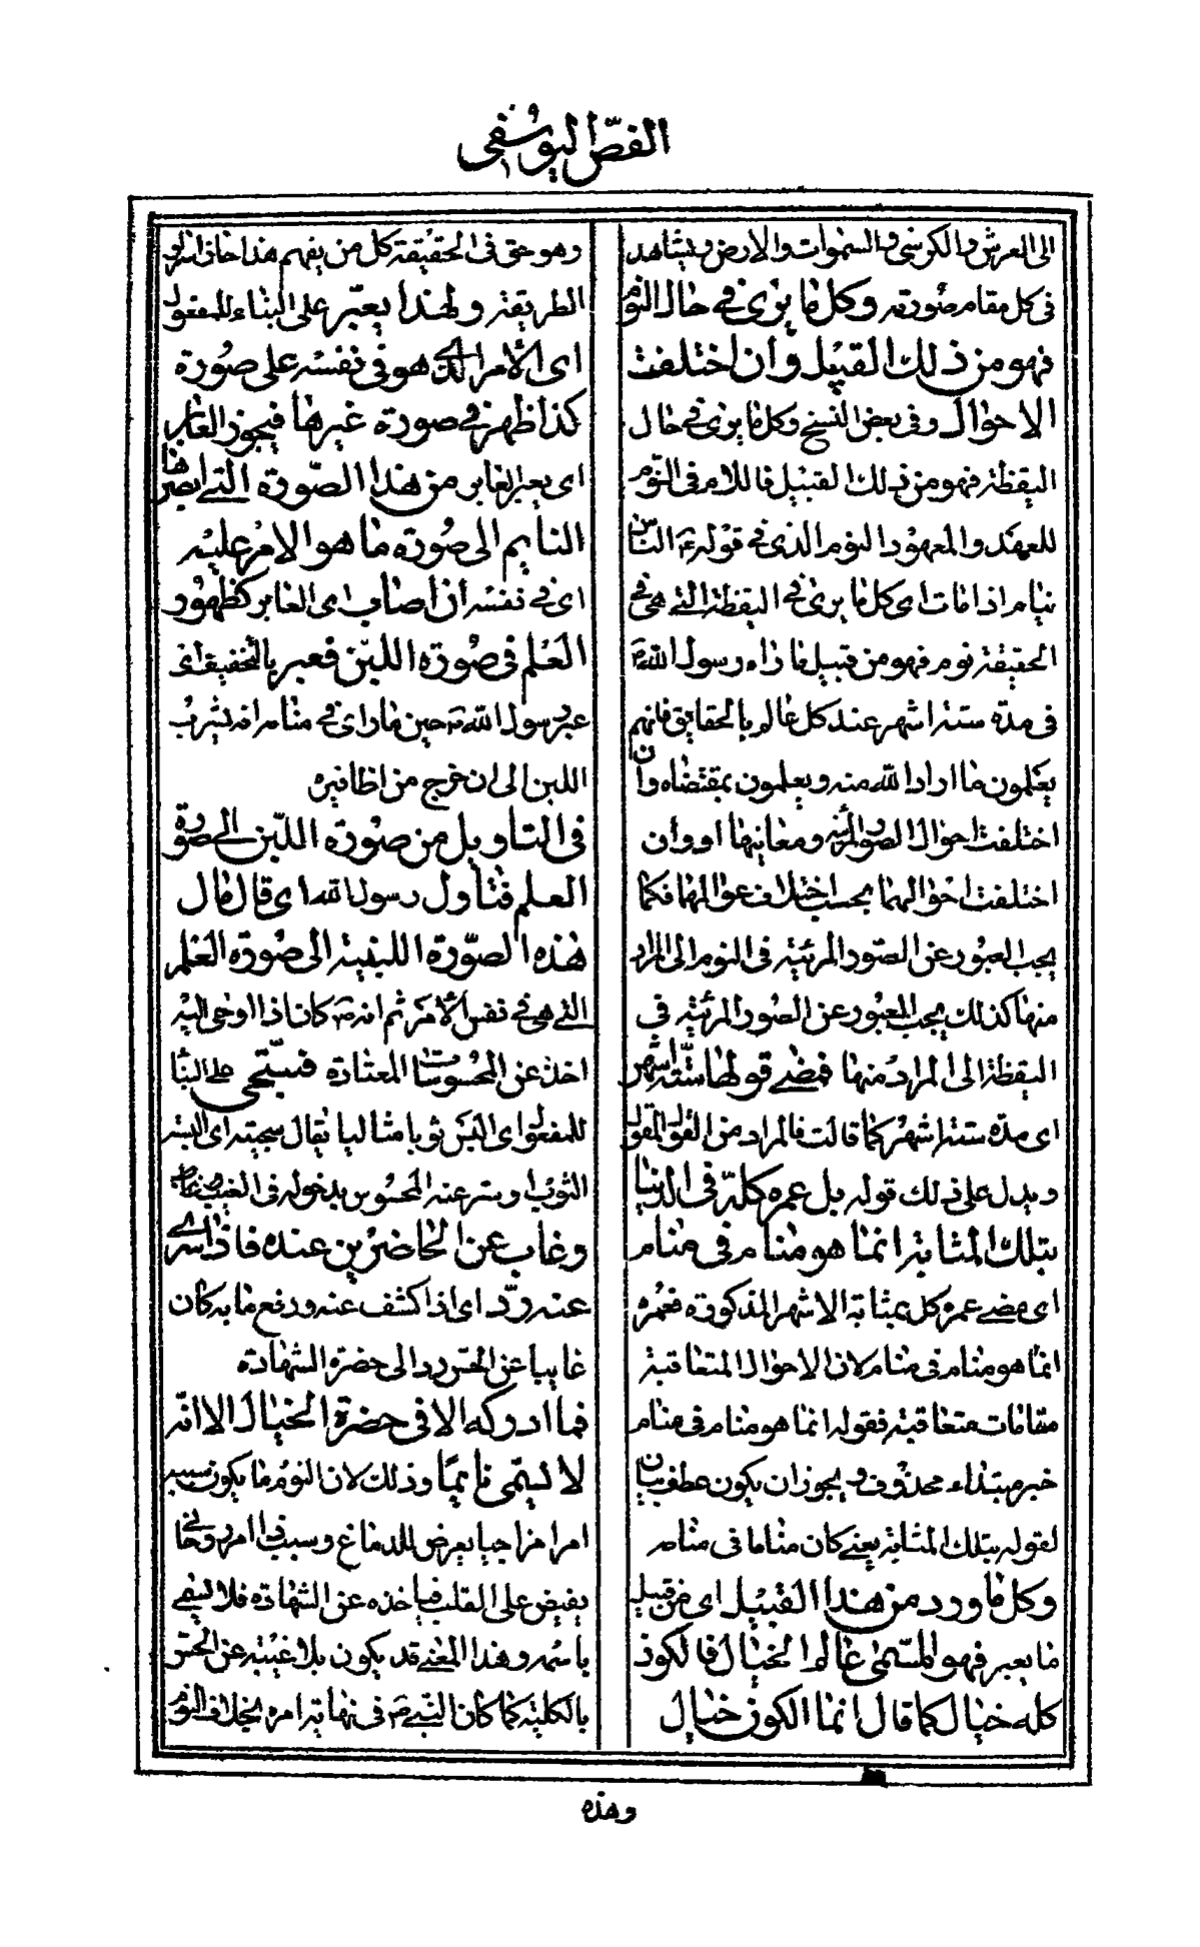 الفصّ اليوسفى
الى العرش والكرسى والسموات والارض ويشاهد
فى كل مقام صورته وكل ما يرى فى حال النوم
فهو من ذلك القبيل وان اختلفت
الاحوال وفى بعض النسخ وكل ما يرى فى حال
اليقظة فهو من ذلك القبيل فاللام فى النوم
للعهد والمعهود النوم الذى فى قوله ع الناس
نيام اذا ماتوا اى كل ما يرى فى اليقظة التى هى فى
الحقيقة نوم فهو من قبيل ما راه رسول الله ص
فى مدة ستة اشهر عند كل عالم بالحقايق فانهم
يعلمون ما اراد الله منه ويعلمون بمقتضاه وان
اختلفت احوال الصور المرئية ومعانيها او وان
اختلفت احوالهما بحسب اختلاف عوالمها فكما
يجب العبور عن الصور المرئية فى النوم الى المراد
منها كذلك يجب العبور عن الصور المرئية فى
اليقظة الى المراد منها فمضى قولها ستة اشهر
اى مدة ستة اشهر كما قالت فالمراد من القول المقول
ويدل على ذلك قوله بل عمره كله فى الدنيا
بتلك المثابة انما هو منام فى منام
اى مضى عمره كل بمثابة الاشهر المذكورة فعمره
انما هو منام فى منام لان الاحوال المتعاقبة
مقامات متعاقبة فقوله انما هو منام فى منام
خبر مبتداء محذوف ويجوز ان يكون عطف بيان
لقوله بتلك المثابة يعنى كان مناما فى منام
وكل ما ورد من هذا القبيل اى من قبيل
ما يعبر فهو المسمى عالم الخيال فالكون
كله خيال كما قال انما الكون خيال
وهو حق فى الحقيقة كل من يفهم هذا حاز اسرار
الطريقة ولهذا يعبّر على البناء للمفعول
اى الامر الذى هو فى نفسه على صورة
كذا ظهر فى صورة غيرها فيجوز العابر
اى يعبر العابر من هذا الصّورة التى ابصرها
النايم الى صورة ما هو الامر عليه
اى فى نفسه ان اصاب اى العابر كظهور
العلم فى صورة اللبن فعبر بالتخفيف اى
عبر رسول الله ص حين ما راى فى منامه انه يشرب
اللبن الى ان خرج من اظافيره
فى التاويل من صورة اللبن الى صورة
العلم فتأول رسول الله اى قال مال
هذه الصّورة اللبنية الى صورة العلم
التى هى فى نفس الامر ثم انه ص كان اذا اوحى اليه
اخذ عن المحسوسات المعتادة فسجّى على البناء
للمفعول اى البس ثوبا مثاليا يقال سجيته اى البسته
الثوب او ستر عنه المحسوس بدخوله فى الغيب
وغاب عن الحاضرين عنده فاذا سرى
عنه ردّ اى اذا كشف عنه ورفع ما به كان
غايبا عن الحس رد الى حضرة الشهادة
فما ادركه الا فى حضرة الخيال الا انه
لا يسمّى نايمًا وذلك لان النوم ما يكون سببه
امرا مزاجيا يعرض للدماغ وسبب هذا امر روحانى
يفيض على القلب فياخذه عن الشهادة فلا يسمى
باسمه وهذا المعنى قد يكون بلا غيبة عن الحس
بالكلية كما كان النبى ص فى نهاية امره بخلاف النوم
وهذه